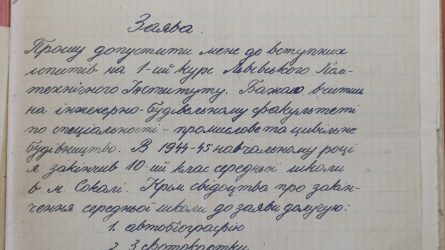 Заява.
Прошу допустити мене до вступних
іспитів на 1-ий курс Львівського Полі-
технічного Інституту. Бажаю вчитись
на інженерно-будівельному факультеті
по спеціальності - промислове та цивільне
будівництво. В 1944-45 навчальному році
я закінчив 10-ий клас середньої школи
в м. Сокалі. Крім свідоцтва про закін-
чення середньої школи до заяви долучую:
1. автобіографію
2. 3 фотокартки